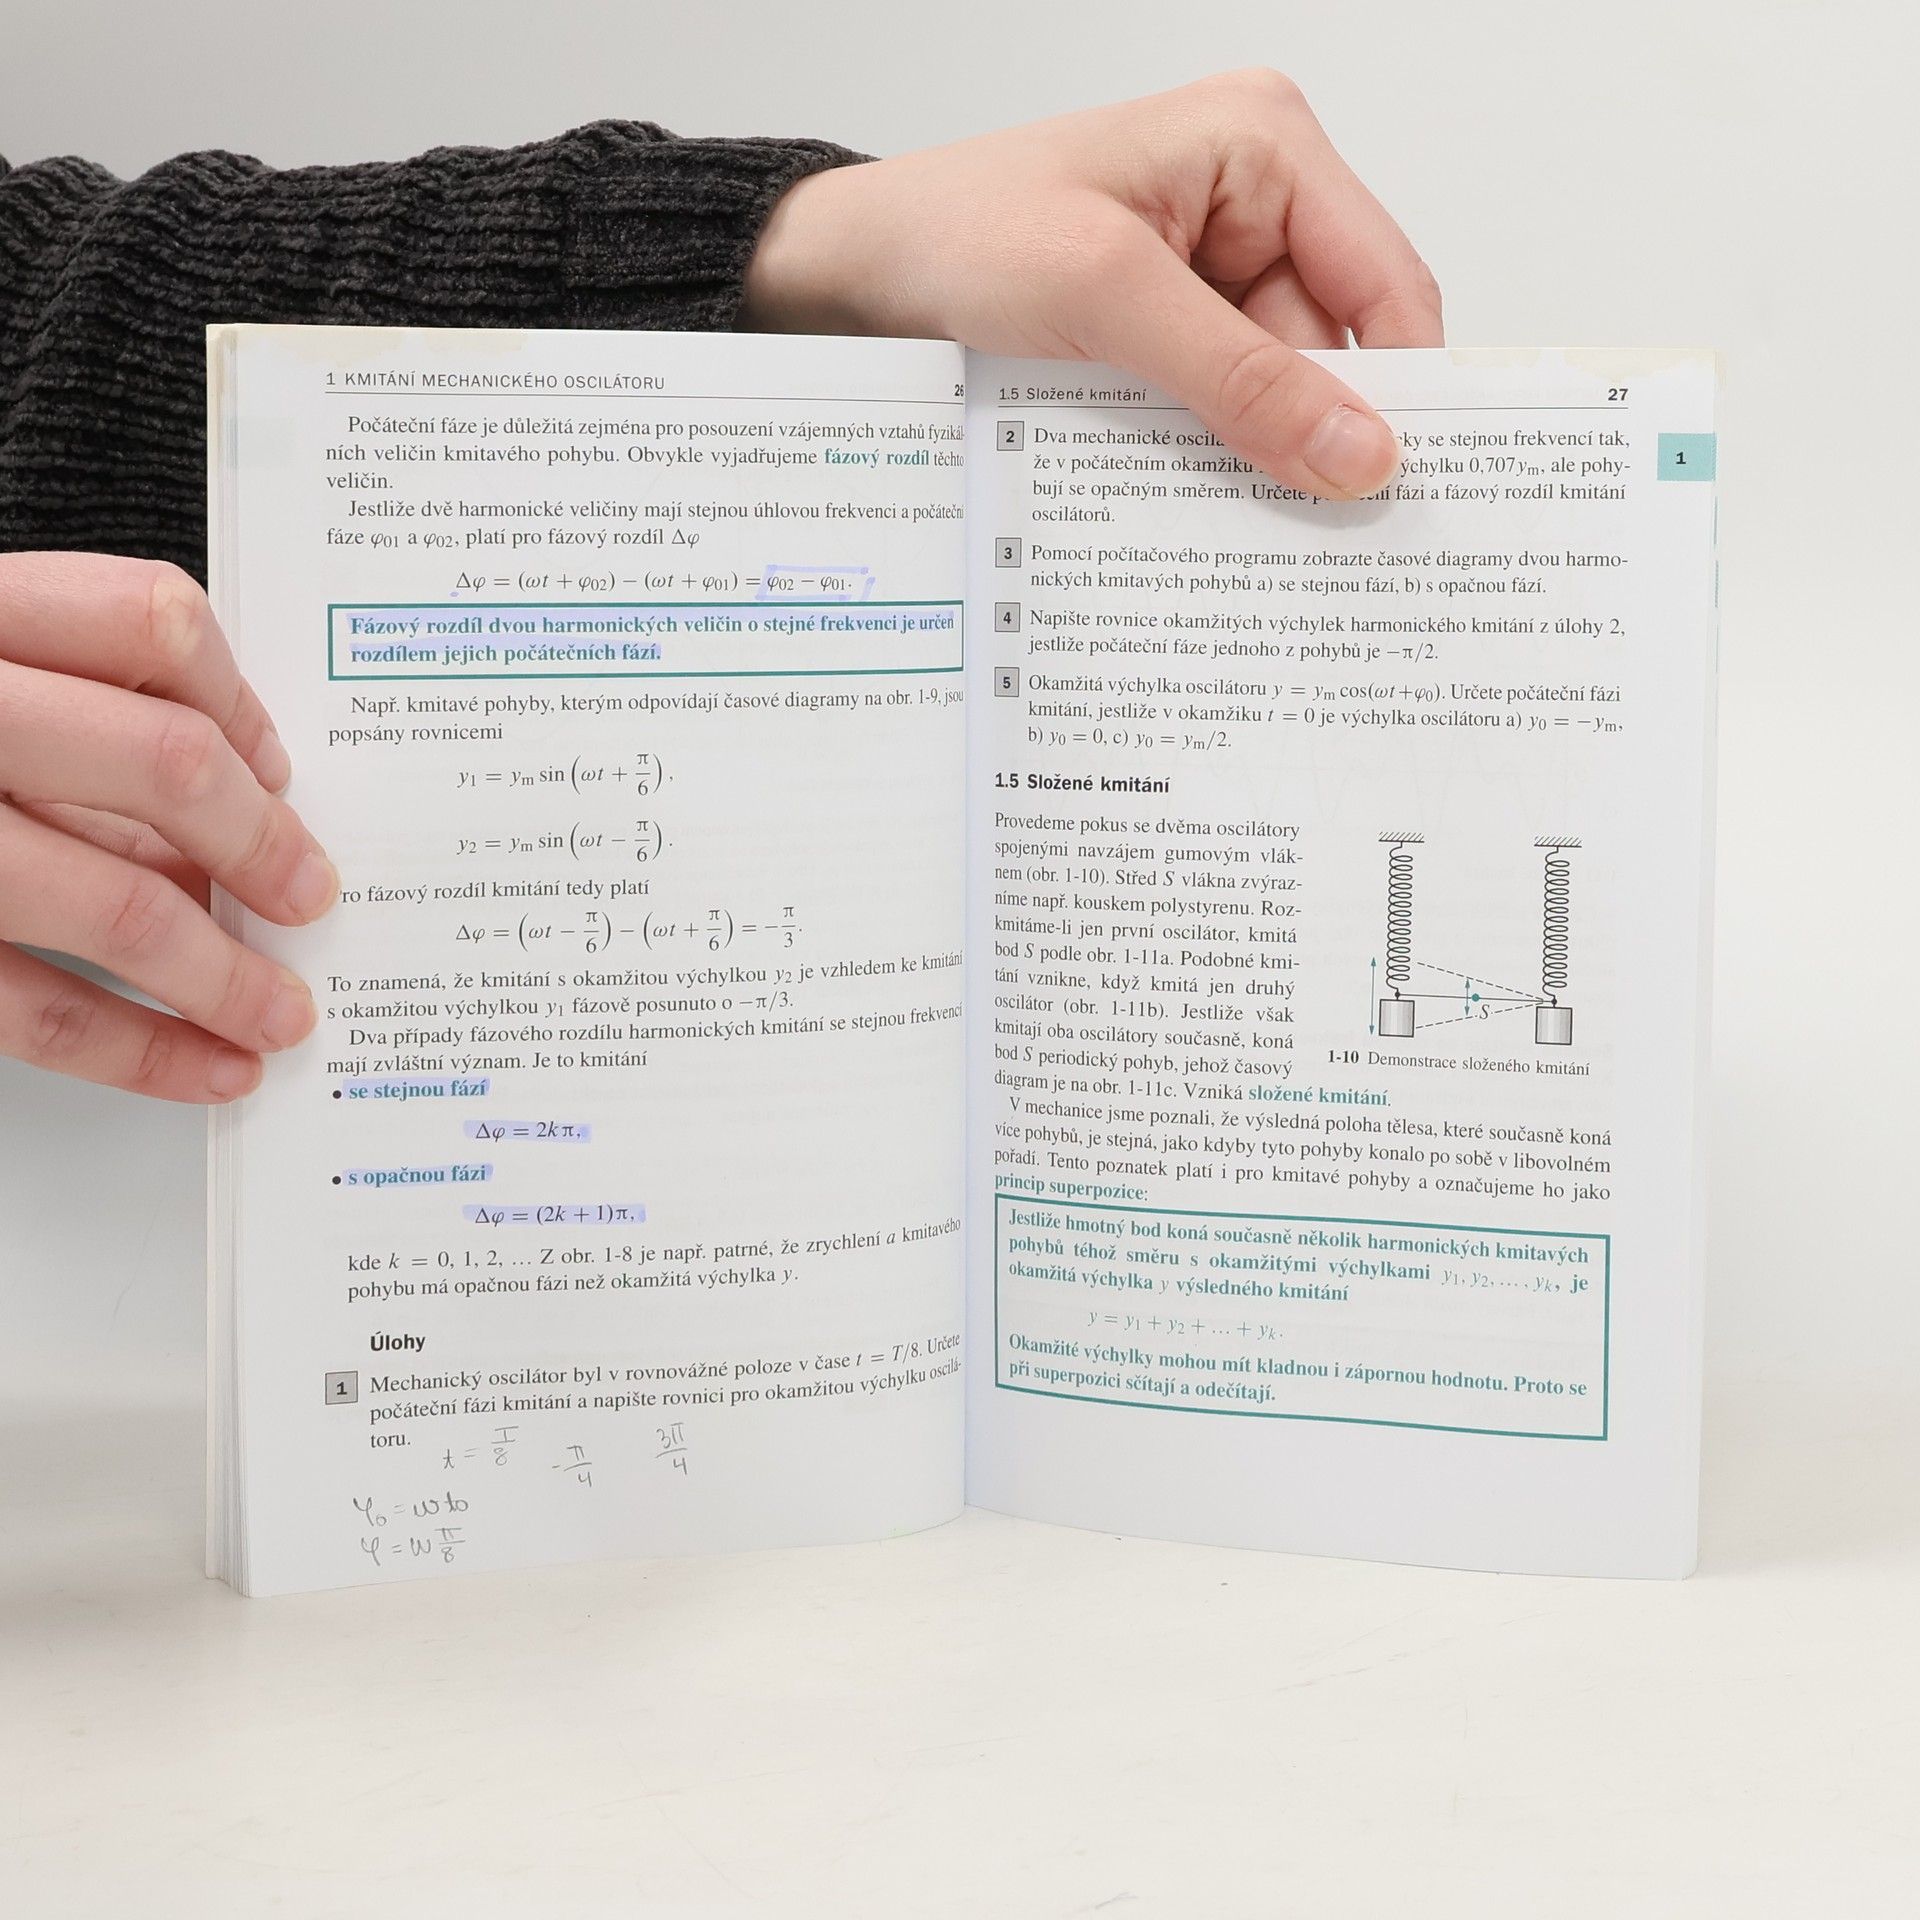 1 KMITÁNÍ MECHANICKÉHO OSCILÁTORU 26
Počáteční fáze je důležitá zejména pro posouzení vzájemných vztahů fyzikál-
ních veličin kmitavého pohybu. Obvykle vyjadřujeme fázový rozdíl těchto
veličin.
Jestliže dvě harmonické veličiny mají stejnou úhlovou frekvenci a počáteční
fáze φ01 a φ02, platí pro fázový rozdíl Δφ
Δφ = (ωt + φ02) − (ωt + φ01) = φ02 − φ01.
Fázový rozdíl dvou harmonických veličin o stejné frekvenci je určen
rozdílem jejich počátečních fází.
Např. kmitavé pohyby, kterým odpovídají časové diagramy na obr. 1-9, jsou
popsány rovnicemi
y1 = ym sin (ωt + π/6),
y2 = ym sin (ωt − π/6).
ro fázový rozdíl kmitání tedy platí
Δφ = (ωt − π/6) − (ωt + π/6) = −π/3.
To znamená, že kmitání s okamžitou výchylkou y2 je vzhledem ke kmitání
s okamžitou výchylkou y1 fázově posunuto o −π/3.
Dva případy fázového rozdílu harmonických kmitání se stejnou frekvencí
mají zvláštní význam. Je to kmitání
• se stejnou fází
Δφ = 2kπ,
• s opačnou fází
Δφ = (2k + 1)π,
kde k = 0, 1, 2, … Z obr. 1-8 je např. patrné, že zrychlení a kmitavého
pohybu má opačnou fázi než okamžitá výchylka y.
Úlohy
1 Mechanický oscilátor byl v rovnovážné poloze v čase t = T/8. Určete
počáteční fázi kmitání a napište rovnici pro okamžitou výchylku oscilá-
toru.
t = T/8 -π/4 3π/4
φ0 = ωt0
φ = ω π/8
1.5 Složené kmitání 27
2 Dva mechanické se stejnou frekvencí tak,
že v počátečním okamžiku 0,707 ym, ale pohy-
bují se opačným směrem. Určete fázi a fázový rozdíl kmitání
oscilátorů.
1
3 Pomocí počítačového programu zobrazte časové diagramy dvou harmo-
nických kmitavých pohybů a) se stejnou fází, b) s opačnou fází.
4 Napište rovnice okamžitých výchylek harmonického kmitání z úlohy 2,
jestliže počáteční fáze jednoho z pohybů je −π/2.
5 Okamžitá výchylka oscilátoru y = ym cos(ωt+φ0). Určete počáteční fázi
kmitání, jestliže v okamžiku t = 0 je výchylka oscilátoru a) y0 = −ym,
b) y0 = 0, c) y0 = ym/2.
1.5 Složené kmitání
Provedeme pokus se dvěma oscilátory
spojenými navzájem gumovým vlák-
nem (obr. 1-10). Střed S vlákna zvýraz-
níme např. kouskem polystyrenu. Roz-
kmitáme-li jen první oscilátor, kmitá
bod S podle obr. 1-11a. Podobné kmi-
tání vznikne, když kmitá jen druhý
oscilátor (obr. 1-11b). Jestliže však
kmitají oba oscilátory současně, koná
bod S periodický pohyb, jehož časový
diagram je na obr. 1-11c. Vzniká složené kmitání.
S
1-10 Demonstrace složeného kmitání
V mechanice jsme poznali, že výsledná poloha tělesa, které současně koná
více pohybů, je stejná, jako kdyby tyto pohyby konalo po sobě v libovolném
pořadí. Tento poznatek platí i pro kmitavé pohyby a označujeme ho jako
princip superpozice:
Jestliže hmotný bod koná současně několik harmonických kmitavých
pohybů téhož směru s okamžitými výchylkami y1, y2, … , yk, je
okamžitá výchylka y výsledného kmitání
y = y1 + y2 + … + yk.
Okamžité výchylky mohou mít kladnou i zápornou hodnotu. Proto se
při superpozici sčítají a odečítají.